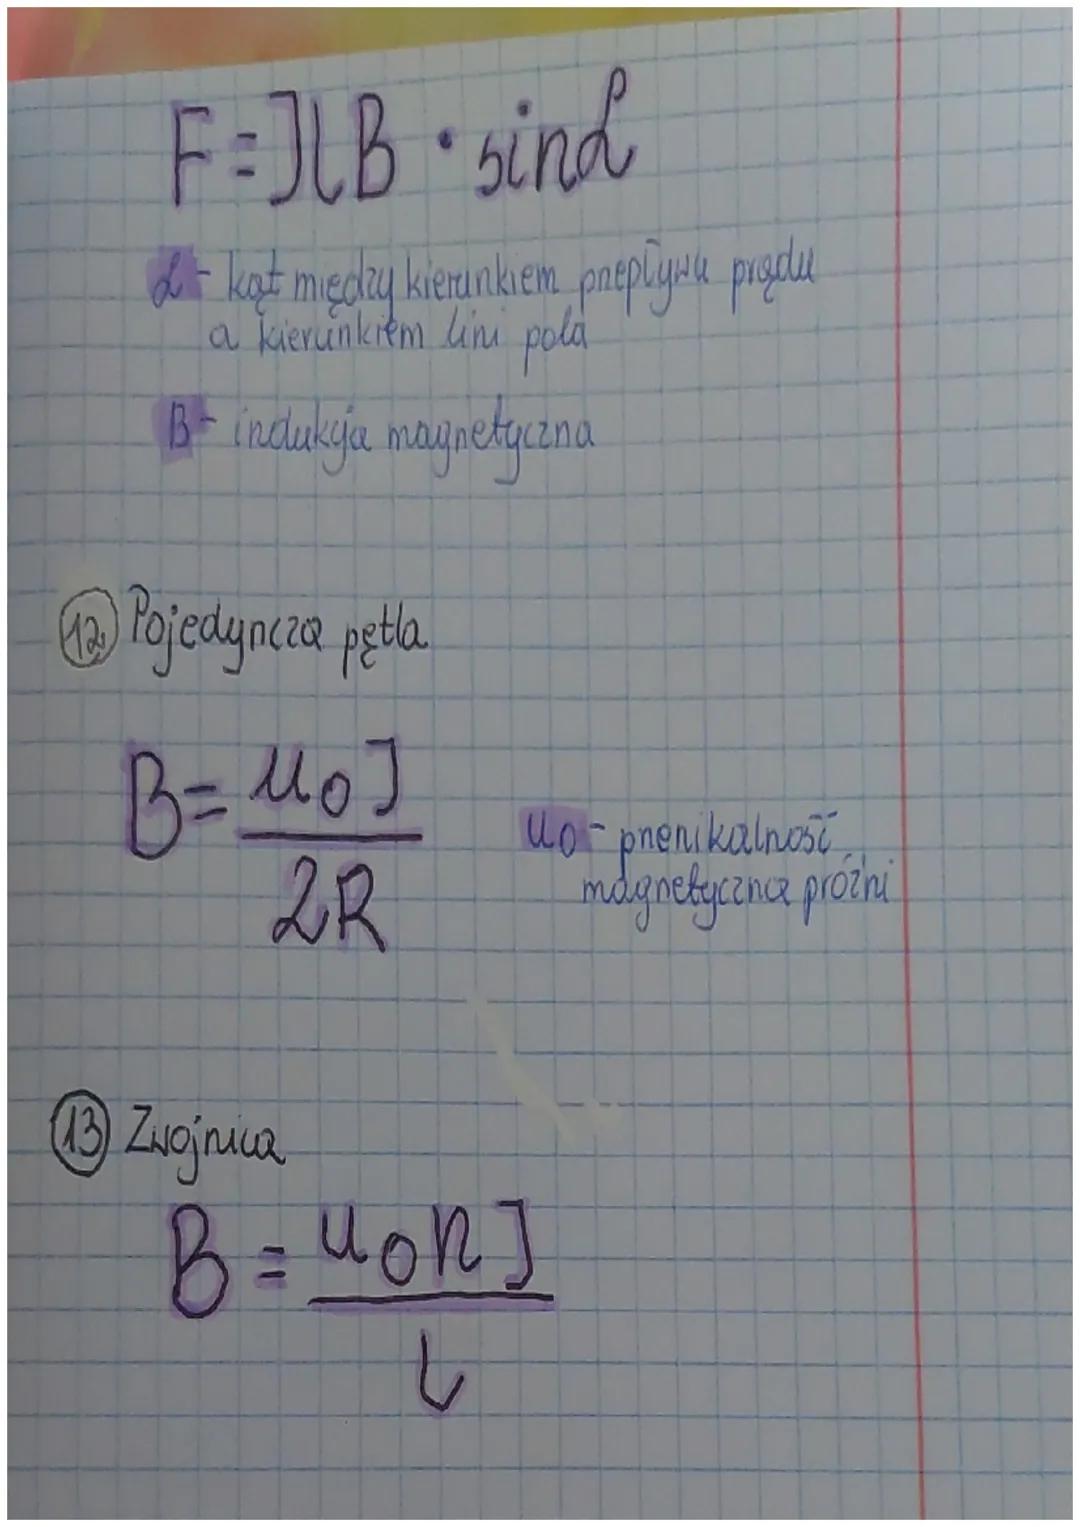 F = IlB · sinα
α - kąt między kierunkiem przepływu prądu
a kierunkiem lini pola
B - indukcja magnetyczna
12. Pojedyncza pętla
B = μ₀I
2R
μ₀ - przenikalność
magnetyczna próżni
13 Zwojnica
B = μ₀nI
l